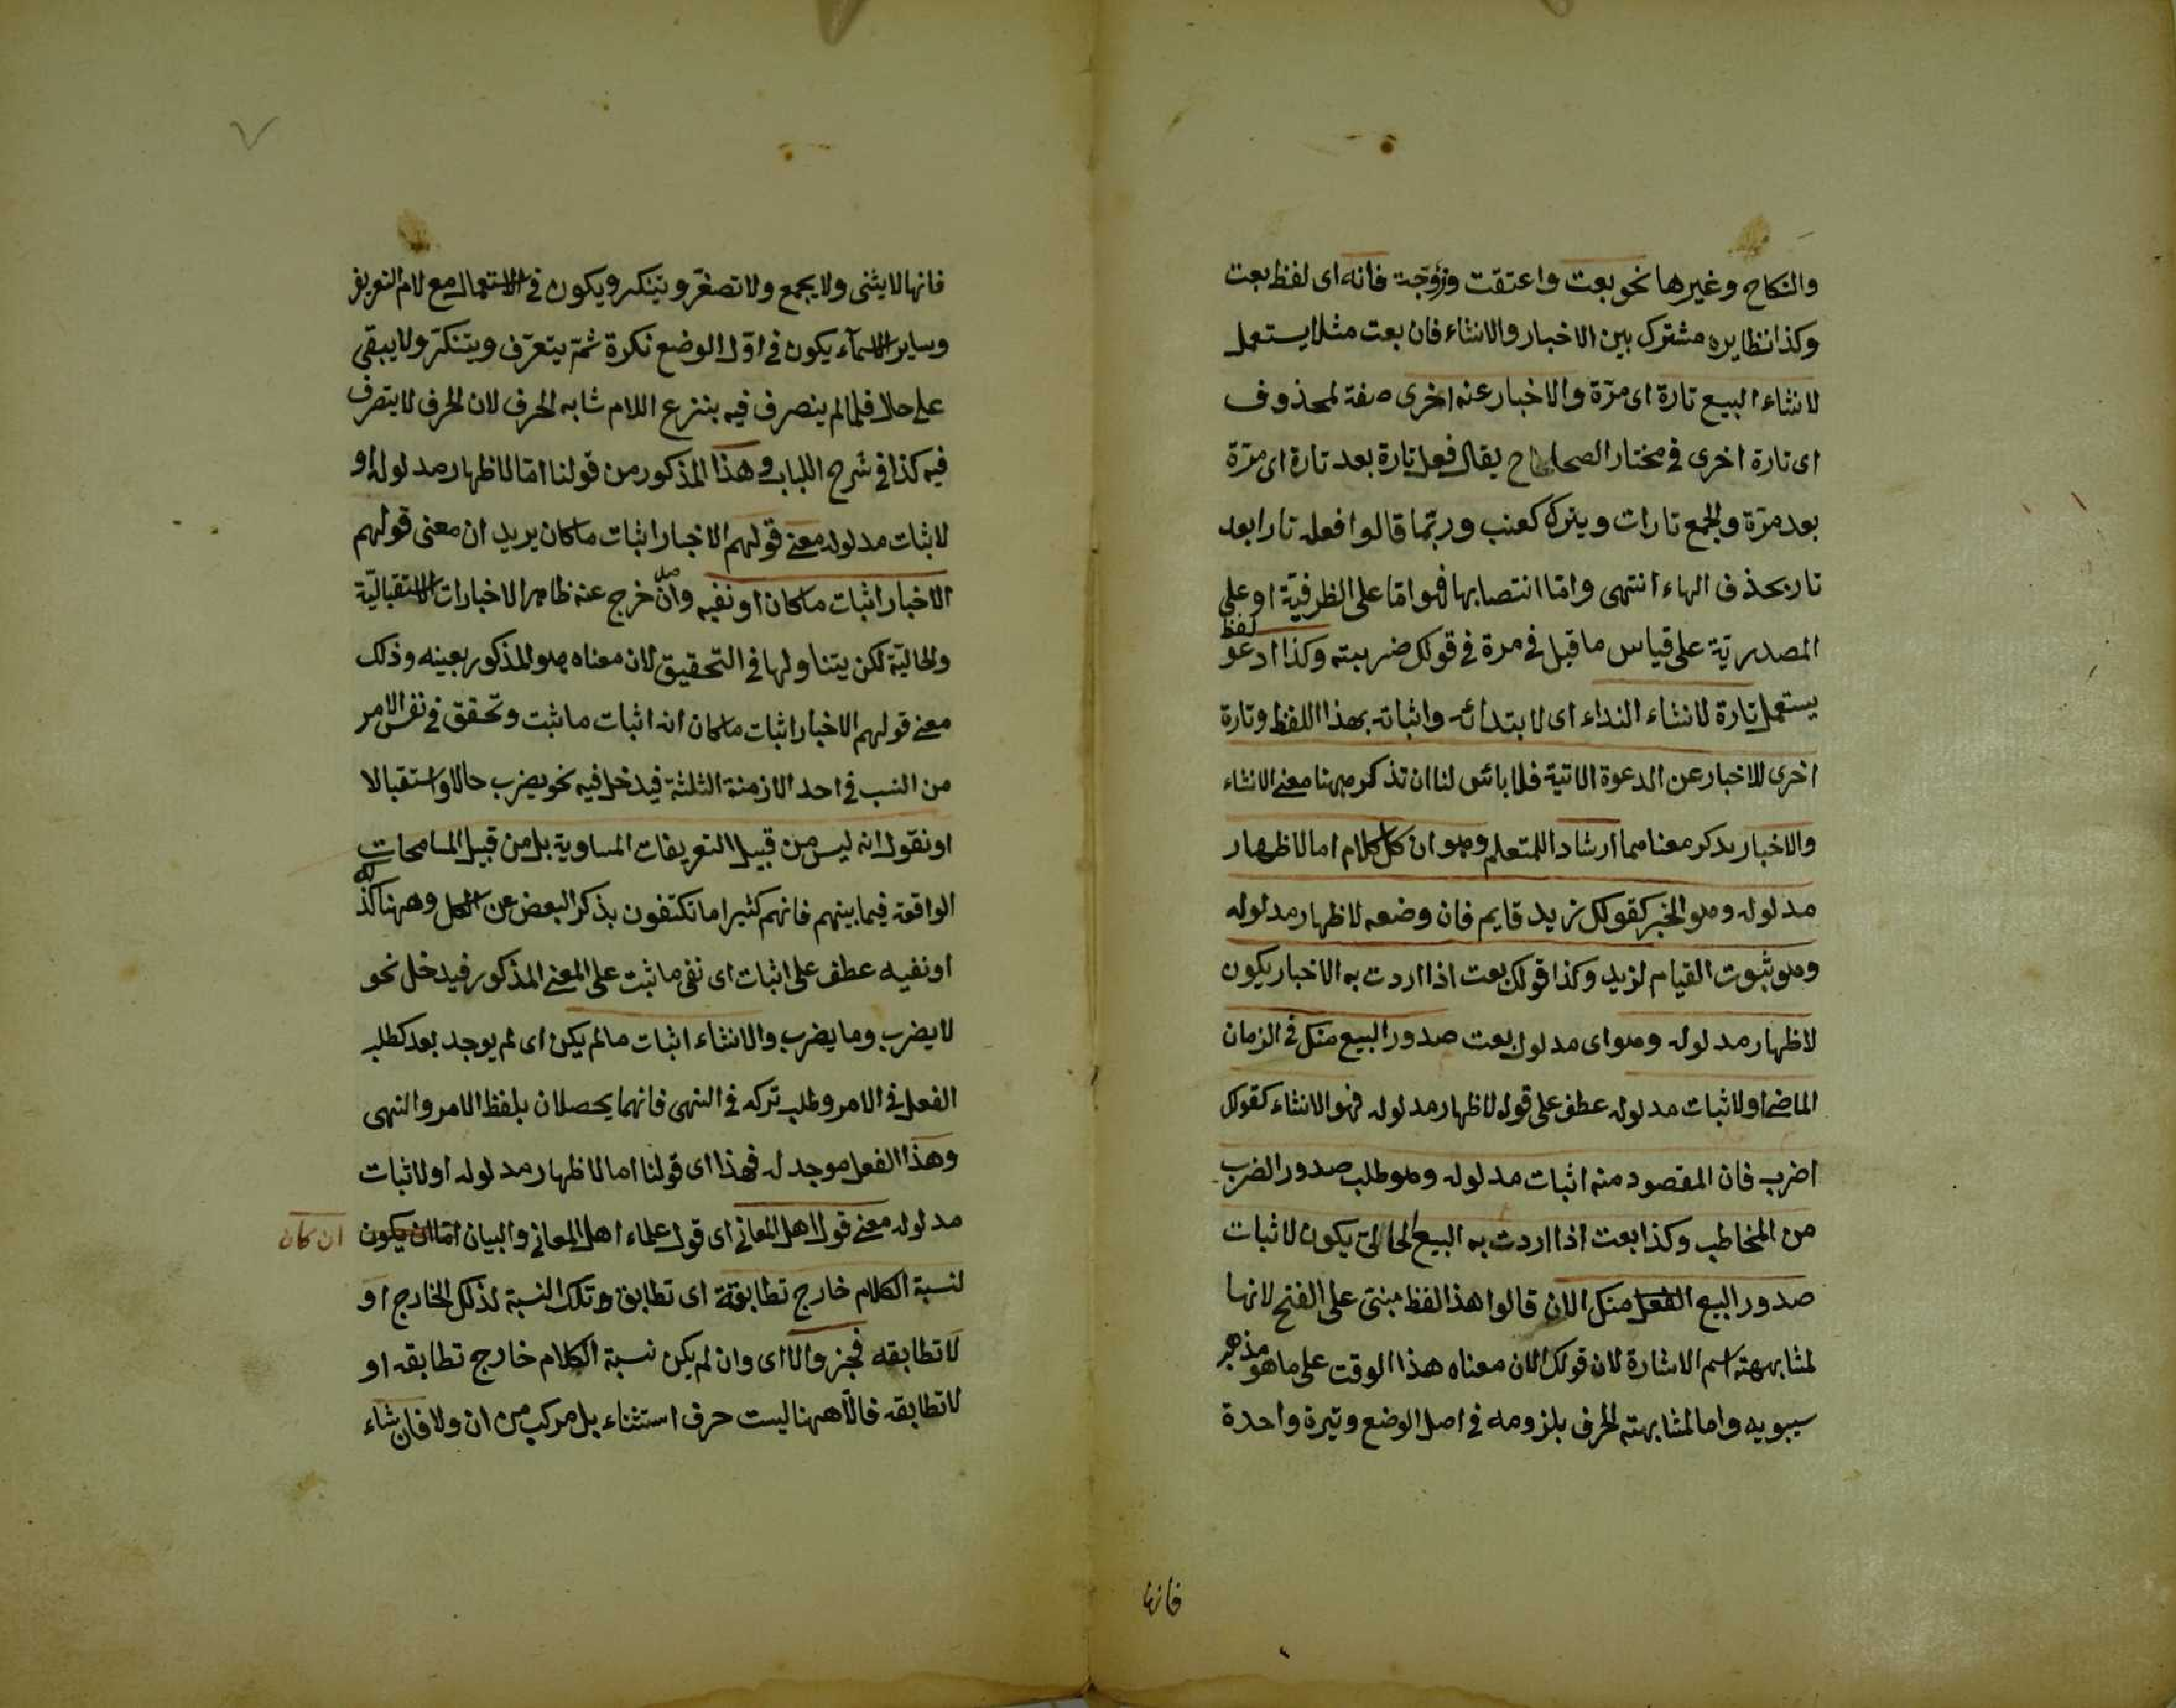 والنكاح وغيرها نحو بعت واعتقت وزوّجت فانه اى لفظ بعت
وكذا نظايره مشترك بين الاخبار والانشاء فان بعت مثلا يستعمل
لانشاء البيع تارة اى مرّة والاخبار عنه اخرى صفة لمحذوف
اى تارة اخرى فى مختار الصحاح يقال فعل تارة بعد تارة اى مرّة
بعد مرّة والجمع تارات وينرك كعنب وربّما قالوا فعله تارا بعد
تار بحذف الهاء انتهى وامّا انتصابها فهو امّا على الظرفيّة او على
المصدريّة على قياس ما قيل فى مرة فى قولك ضربته وكذا لفظ ادعو
يستعمل تارة لانشاء النداء اى لابتدائه واثباته بهذا اللفظ وتارة
اخرى للاخبار عن الدعوة الاتية فلا بائس لنا ان نذكر ههنا معنى الانشاء
والاخبار يذكر معناهما ارشادا للمتعلم وهو ان كل كلام اما لاظهار
مدلوله وهو الخبر كقولك زيد قايم فان وضعه لاظهار مدلوله
وهو ثبوت القيام لزيد وكذا قولك بعت اذا اردت به الاخبار يكون
لاظهار مدلوله وهو اى مدلول بعت صدور البيع منك فى الزمان
الماضى او لاثبات مدلوله عطف على قوله لاظهار مدلوله فهو الانشاء كقولك
اضرب فان المقصود منه اثبات مدلوله وهو طلب صدور الضرب
من المخاطب وكذا بعت اذا اردت به البيع الحالىّ يكون لاثبات
صدور البيع الفعل منك الان قالوا هذا لفظ مبنىّ على الفتح لانها
لمشابهته اسم الاشارة لان قولك الان معناه هذا الوقت على ما هو مذهب
سيبويه واما لمشابهته الحرف بلزومه فى اصل الوضع وتيرة واحدة
فانها
فانها لا يثنى ولا يجمع ولا تصغّر وتنكر ويكون فى الاستعمال مع لام التعريف
وساير الاسمآء يكون فى اوّل الوضع نكرة ثمّ يتعرّف ويتنكّر ولا يبقى
على حال فلما لم ينصرف فيه بنزع اللام شابه الحرف لان الحرف لا يتصرف
فيه كذا فى شرح اللباب وهذا المذكور من قولنا امّا لاظهار مدلوله او
لاثبات مدلوله معنى قولهم الاخبار اثبات ما كان يريد ان معنى قولهم
الاخبار اثبات ما كان او نفيه وان خرج عنه ظاهر الاخبارات الاستقباليّة
والحاليّة لكن يتناولها فى التحقيق لان معناه هو المذكور بعينه وذلك
معنى قولهم الاخبار اثبات ما كان انه اثبات ما ثبت وتحقق فى نفس الامر
من النسب فى احد الازمنة الثلثة فيدخل فيه نحو يضرب حالا واستقبالا
او نقول انه ليس من قبيل التعريفات المساوية بل من قبيل المسامحات
الواقعة فيما بينهم فانهم كثيرا ما تكتفون بذكر البعض عن الكل وههنا كذلك
او نفيه عطف على اثبات اى نفى ما ثبت على المعنى المذكور فيدخل نحو
لا يضرب وما يضرب والانشاء اثبات ما لم يكن اى لم يوجد بعد كطلب
الفعل فى الامر وطلب تركه فى النهى فانهما يحصلان بلفظ الامر والنهى
وهذا الفعل موجد له فهذا اى قولنا اما لاظهار مدلوله او لاثبات
مدلوله معنى قول اهل المعانى اى قول علماء اهل المعانى والبيان امّا ان يكون
ان كان
لنسبة الكلام خارج تطابقه اى تطابق وتلك النسبة لذلك الخارج او
لا تطابقه فخبز والا اى وان لم يكن نسبة الكلام خارج تطابقه او
لا تطابقه فالّا ههنا ليست حرف استثناء بل مركب من ان ولا فان شاء